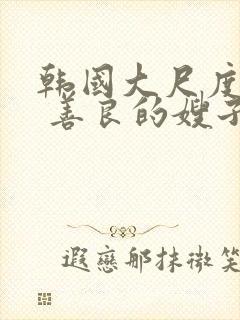 韩国大尺度
善良的嫂子
遐恋那抹微笑